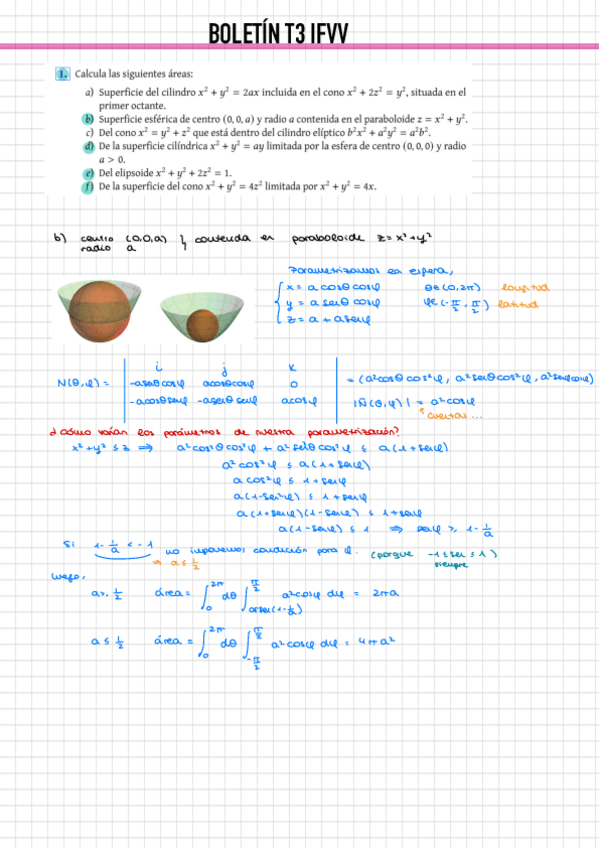 BOLETÍN T3 IFVV
1. Calcula las siguientes áreas:
a) Superficie del cilindro x² + y² = 2ax incluida en el cono x² + 2z² = y², situada en el
primer octante.
b) Superficie esférica de centro (0, 0, a) y radio a contenida en el paraboloide z = x² + y².
c) Del cono x² = y² + z² que está dentro del cilindro elíptico b²x² + a²y² = a²b².
d) De la superficie cilíndrica x² + y² = ay limitada por la esfera de centro (0, 0, 0) y radio
a > 0.
e) Del elipsoide x² + y² + 2z² = 1.
f) De la superficie del cono x² + y² = 4z² limitada por x² + y² = 4x.
b) centro (0,0,a) } contenida en paraboloide z = x²+y²
radio a
Parametrizamos la esfera,
x = a cosθ cosφ θ∈(0,2π) longitud
y = a senθ cosφ φ∈(-π/2, π/2) latitud
z = a + a senφ
i j k
N(θ,φ) = | -a senθ cosφ a cosθ cosφ 0 | = (a² cosθ cos²φ, a² senθ cos²φ, a² senφ cosφ)
-a cosθ senφ -a senθ senφ a cosφ |N(θ,φ)| = a² cosφ
cuentas...
¿cómo varían los parámetros de nuestra parametrización?
x² + y² ≤ z ⇒ a² cos²θ cos²φ + a² sen²θ cos²φ ≤ a(1+senφ)
a² cos²φ ≤ a(1+senφ)
a cos²φ ≤ 1+senφ
a(1-sen²φ) ≤ 1+senφ
a(1+senφ)(1-senφ) ≤ 1+senφ
a(1-senφ) ≤ 1 ⇒ senφ ≥ 1-1/a
Si 1-1/a < -1 no imponemos condición para φ. (porque -1 ≤ sen ≤ 1)
⇒ a ≤ 1/2 siempre
luego,
a > 1/2 área = ∫₀^{2π} dθ ∫_{arcsen(1-1/a)}^{π/2} a² cosφ dφ = 2πa
a ≤ 1/2 área = ∫₀^{2π} dθ ∫_{-π/2}^{π/2} a² cosφ dφ = 4πa²